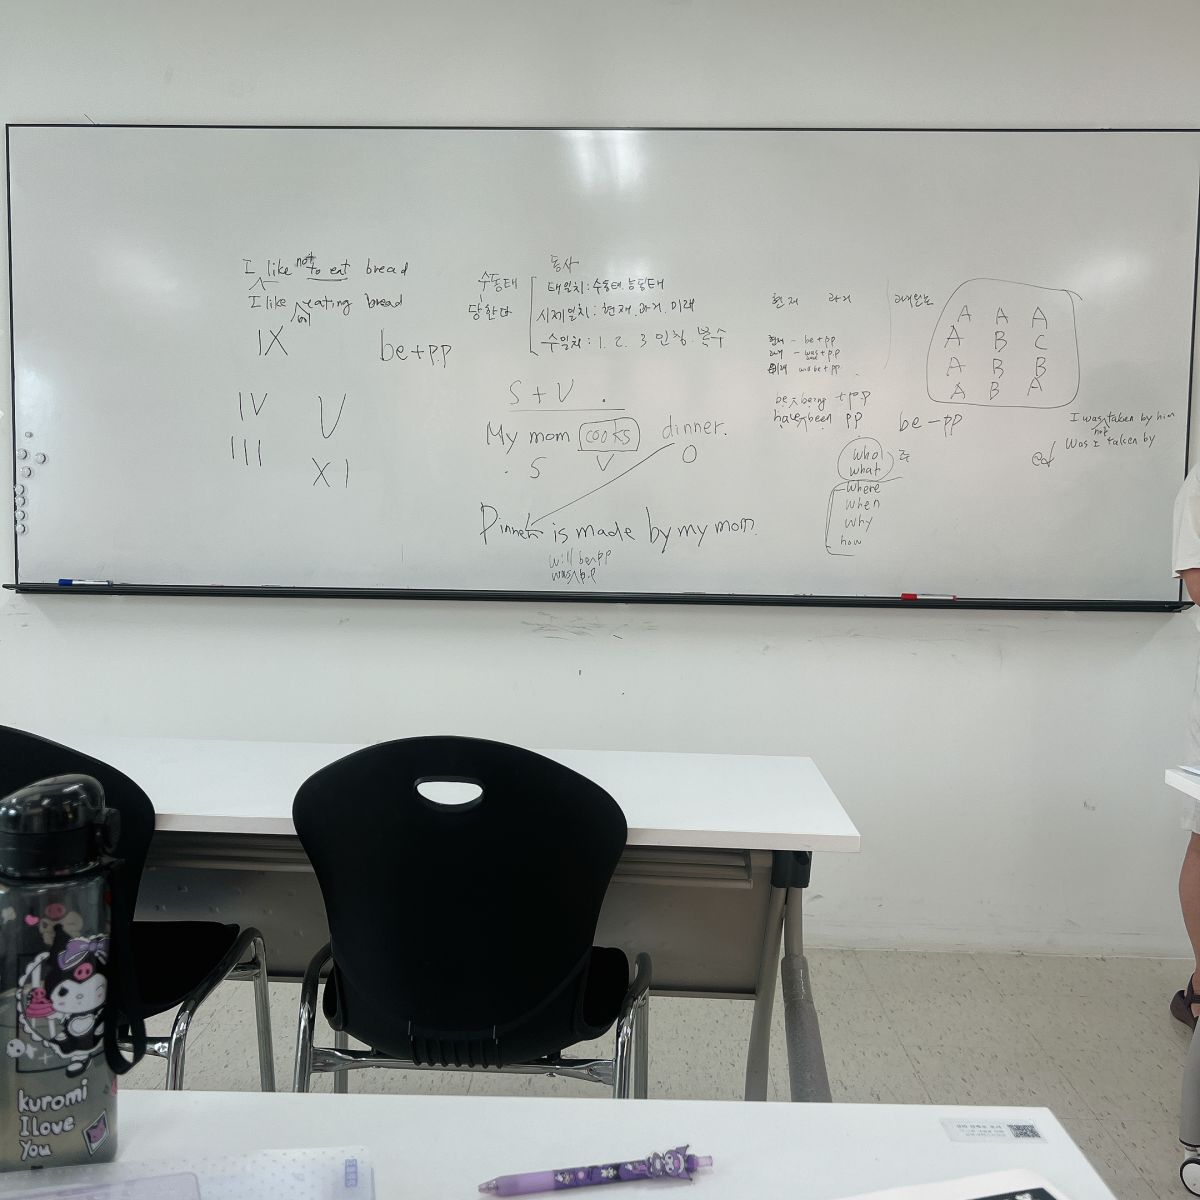 I like not to eat bread
I like not eating bread
IX
be+p.p
IV
V
III
XI
동사
수동태
당한다
태일치: 수동태. 능동태
시제일치: 현재. 과거. 미래
수일치: 1. 2. 3 인칭. 복수
S + V .
My mom cooks dinner.
S V O
Dinner is made by my mom.
will be pp
was p.p
현재 과거
현재 - be+pp
과거 - was+p.p
미래 will be+pp
be being +p.p
have been pp
be - pp
who
what
주
where
when
why
how
A A A
A B C
A B B
A B A
I was not taken by him
Was I taken by
ed
kuromi
I love
You